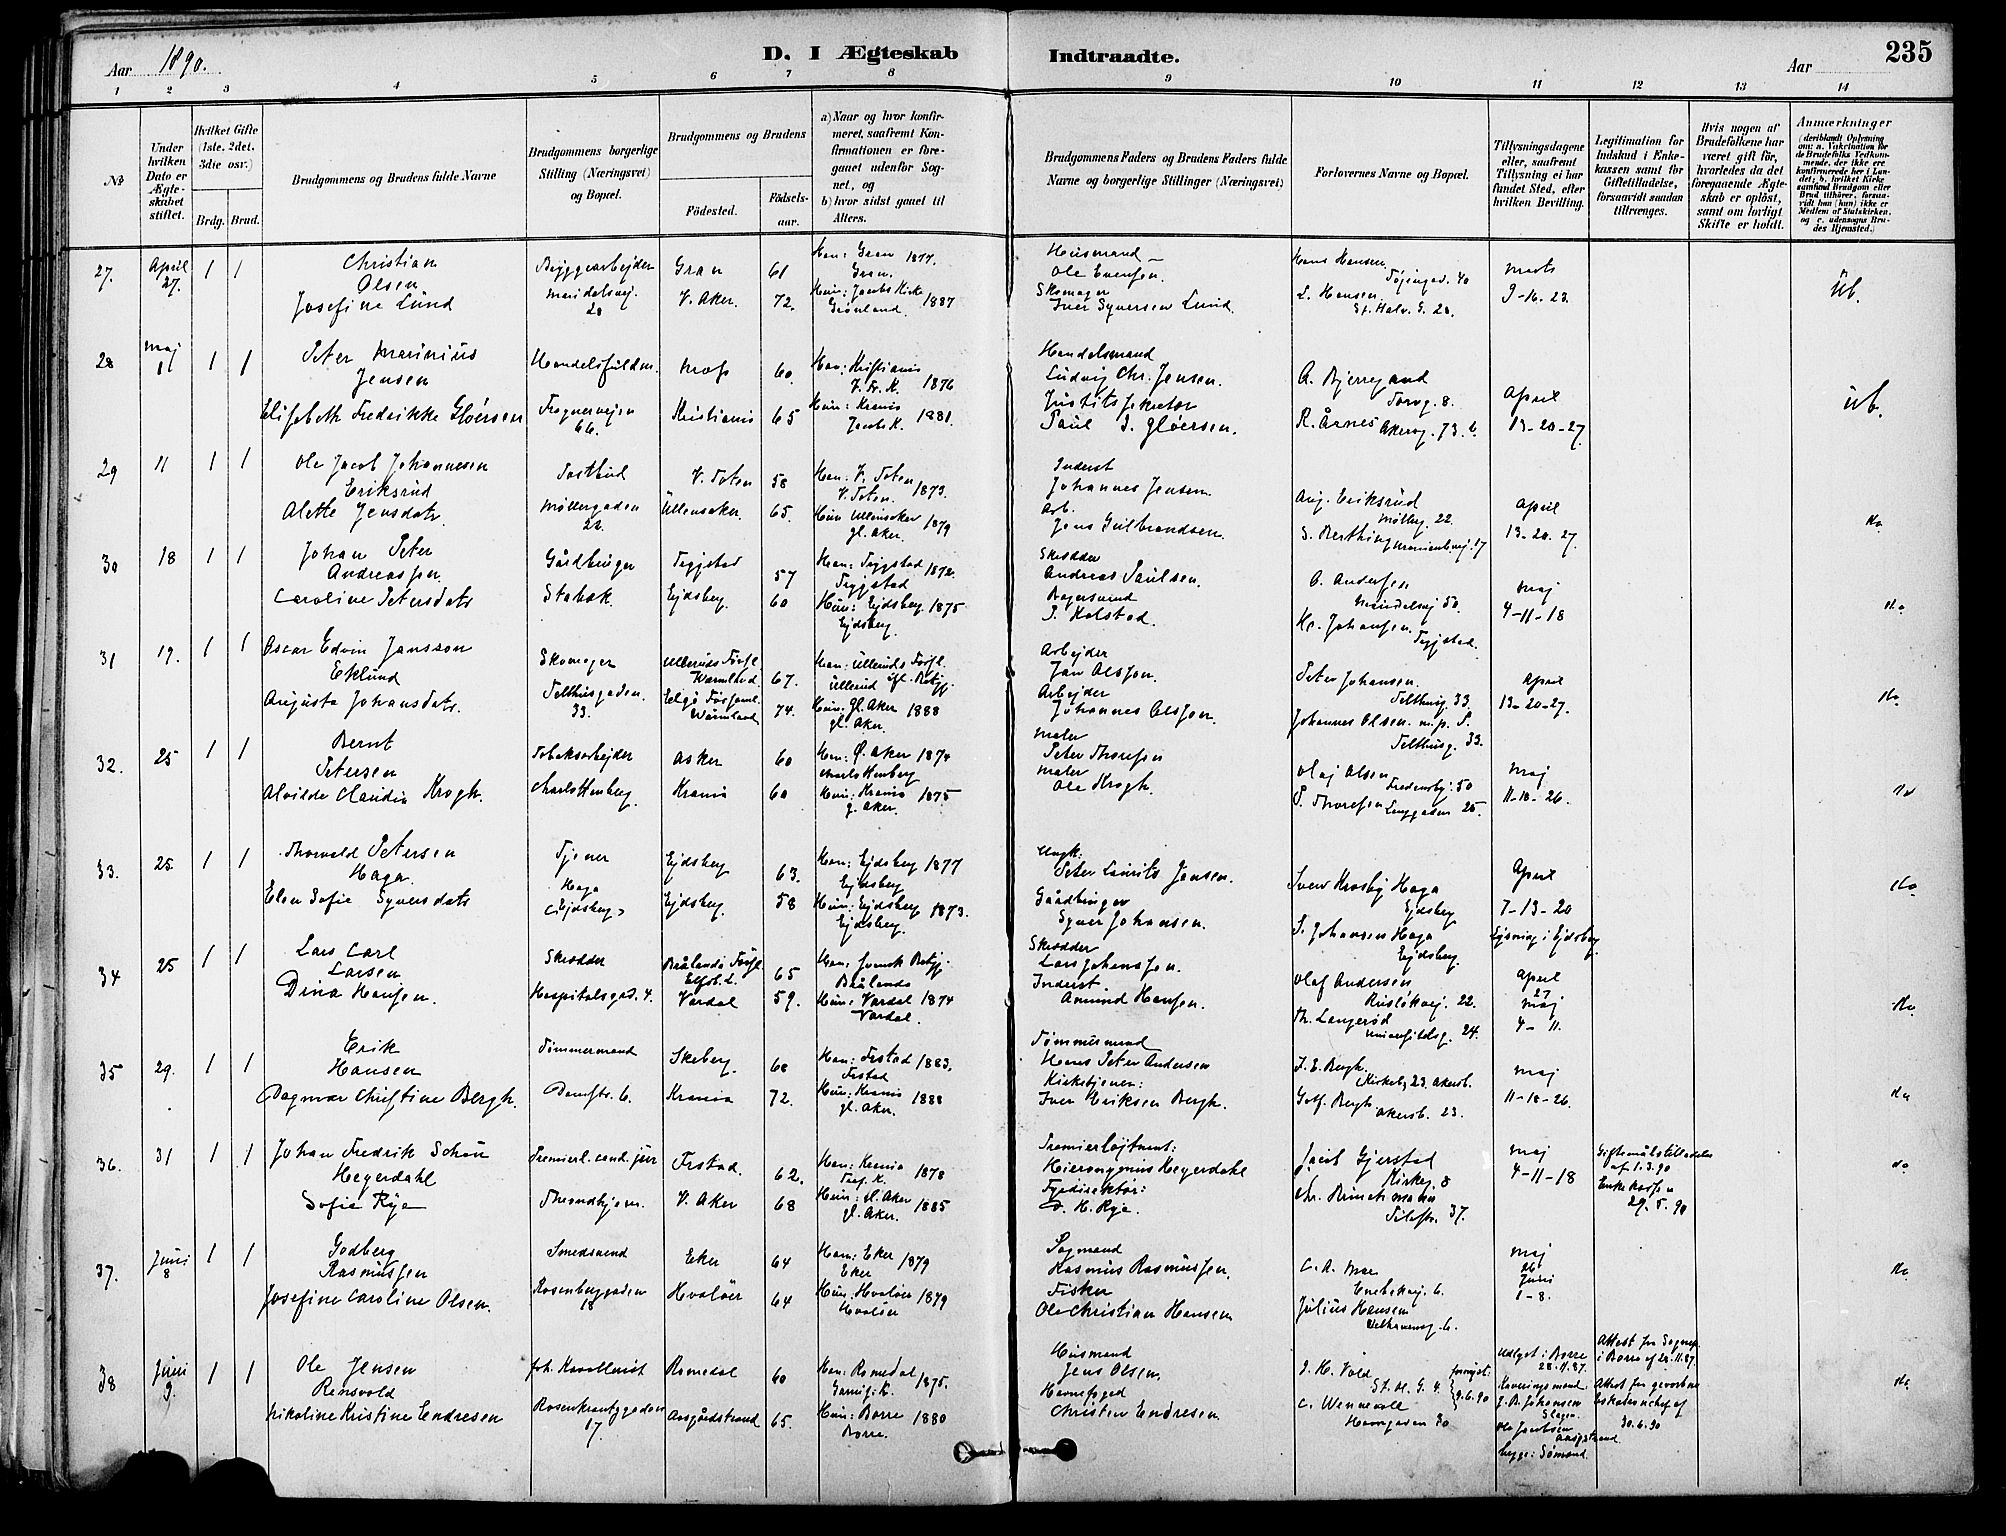 Aar 1890.
D. I Ægteskab Indtraadte.
Aar
235
1 2 3 4 5 6 7 8 9 10 11 12 13 14
No
Under hvilken Dato er Ægteskabet stiftet.
Hvilket Gifte (1ste. 2det. 3dte osv.)
Brdg. Brud.
Brudgommens og Brudens fulde Navne
Brudgommens borgerlige Stilling (Næringsvei) og Bopæl.
Brudgommens og Brudens
Fødested.
Fødselsaar.
a) Naar og hvor konfirmeret, saafremt Konfirmationen er foregaaet udenfor Sognet, og
b) hvor sidst gaaet til Alters.
Brudgommens Faders og Brudens Faders fulde Navne og borgerlige Stillinger (Næringsvei)
Forlovernes Navne og Bopæl.
Tillysningsdagene eller, saafremt Tillysning ei har fundet Sted, efter hvilken Bevilling.
Legitimation for Indskud i Enkekassen samt for Giftetilladelse, forsaavidt saadan tiltrænges.
Hvis nogen af Brudefolkene har været gift før, hvorledes da det foregaaende Ægteskab er opløst, samt om lovligt Skifte er holdt.
Anmærkninger
27. April 27. 1 1
Christian Olsen
Josefine Lund
Bryggearbejder
Maridalsvej. 28
Gran 61
V. Aker. 72.
Han: Gran 1877. Gran.
Hun: Jacobs Kirke Grønland. 1887
Husmand Ole Evensen.
Skomager Iver Syversen Lund.
Hans Hansen
L. Hansen St. Halv. G. 28.
Marts 9-16. 23.
28 Maj 11 1 1
Peter Marinius Jensen
Elisabeth Fredrikke Gløersen
Handelsfuldm.
Frognervejen 66.
Moss 60.
Kristiania 65
Han: Kristiania V. Fr. K. 1876
Hun: Krania Jacobs K. 1881.
Handelsmand Ludvig Chr. Jensen.
Justitssekretær Paul I. Gløersen.
A. Bjerregaard Torvg. 8.
R. Årnes Akersg. 73. b.
April 13-20-27
ub.
29 11 1 1
Ole Jacob Johannesen Eriksrud
Alette Jensdatr.
Postbud
Møllergaden 22.
V. Toten 58
Ullensaker. 65.
Han: V. Toten V. Toten. 1873.
Hun Ullensaker gl. Aker. 1879
Inderst Johannes Jensen.
Arb. Jens Gulbrandsen.
Aug. Eriksrud Møllerg. 22.
April 13-20-27.
do
30 18 1 1
Johan Peter Andreassen.
Caroline Petersdatr
Gårdbruger
Stabæk.
Trygstad 57
Ejdsberg. 60
Han: Trygstad 1872. Trygstad
Hun: Ejdsberg 1875 Ejdsberg.
Skrædder Andreas Paulsen.
P. Kolstad.
O. Andersen Maridalsvej 50.
H. Johansen Trygstad.
Maj 4-11-18
do
31 19. 1 1
Oscar Edvin Jansson Eklund
Augusta Johansdatr.
Skomager
Telthusgaden. 33.
Ulleruds Forsl. Wärmland. 67.
Wärmland 74.
Hun: gl. Aker 1888 gl. Aker.
Arbejder Jan Olsson.
Arbejder Johannes Olsson.
Peter Johansen. Telthusg. 33.
Johannes Olsen. m.p. P. Telthusg. 33.
April 13-20-27.
do
32. 25 1 1
Bernt Petersen
Alvilde Claudia Krogh.
Tobaksarbejder
Charlottenberg.
Asker 60
Krania 60
Han: Ø. Aker 1874 Charlottenberg
Hun: Krania 1875 g. Aker.
Maler Peter Thoresen
Maler Ole Krogh.
Olaj Olsen Fredensbj: 50
P. Thoresen Langgaden 25.
Maj 11-18-26.
do
33. 25. 1 1
Thorvald Petersen Haga.
Elen Sofie Syversdatr
Tjener
Haga (Ejdsberg)
Ejdsberg 63.
Ejdsberg. 58
Han: Ejdsberg 1877 Ejdsberg
Hun: Ejdsberg 1873. Ejdsberg.
Ungk: Peter Laurits Jensen.
Gårdbruger Syver Johansen.
Sven Krosby Haga Ejdsberg
S. Johansen Haga Ejdsberg.
April 7-13-20
Lysning i Ejdsberg
do
34 25 1 1
Lars Carl Larsen
Dina Hansen.
Skrædder
Hospitalsgad. 4.
Brålanda Forsl. Elfsb. L. 65
Vardal 59.
Han: svensk Betyg. Brålanda
Hun: Vardal 1874 Vardal.
Skrædder Lars Johansson.
Inderst. Amund Hansen.
Olaf Andersen Ruseløkvej. 22.
Th. Langerød Universitetsg. 24.
April 27 Maj 4-11.
do
35 29. 1 1
Erik Hansen
Dagmar Christine Bergh.
Tømmermand
Damstr. 6.
Skeberg. 68
Krania 72.
Han: Trstad 1883. Trstad
Hun: Krania 1888 gl. Aker.
Tømmermand Hans Peter Andersen
Kirketjener: Iver Eriksen Bergh.
I. E. Bergh. Kirkeb. 23. Akersb.
Gotf. Bergh Akersb. 23.
Maj 11-18-26.
do
36. 31 1 1
Johan Fredrik Schøn Heyerdahl
Sofie Rye
Premierl. cand. jur
Throndhjem.
Trstad. 62.
V. Aker 68
Han: Krania 1878 Tref. K.
Hun: gl. Aker 1885 gl. Aker.
Premierløjtnant: Hieronymus Heyerdahl
Fyrdirektør: D. H. Rye.
Jacob Gjerstad Kirkeg. 8
Chr. Brinchmann Pilestr. 37.
Maj 4-11-18
Giftemålstilladelse af 1.3.90
Enkekassen 29.5.90
do
37. Juni 8 1 1
Godberg Rasmussen
Josefine Caroline Olsen.
Smedsvend
Rosenborggaden 18
Eker 64
Hvaløer 64
Han: Eker 1879 Eker
Hun: Hvaløer 1879 Hvaløer
Sagmand Rasmus Rasmussen.
Fisker Ole Christian Hansen
Julius Hansen Welhavensg. 6.
Maj 26 Juni 1-8.
do
38 Juni 9 1 1
Ole Jensen Rensvold
Nikoline Kristine Endresen
Joh. Kavallerist
Rosenkrantzgaden 17
Romedal 60
Aasgårdstrand 65.
Han: Romedal Garnis. K. 1875.
Hun: Borre 1880 Borre.
Husmand Jens Olsen.
Havnefoged Christen Endresen
J. H. Vold St. M. G. 4.
C. Wennevold Havngaden 30
fornyet. 9.6.90
Udlyst i Borre 28.11.87.
J. B. Johansen Slagen.
Ole Jacobsen Aasgstrand.
begge: Sømænd.
Attest fra Sognep. i Borre af 28.11.87.
Attest fra gevorbne Eskadronchef af 30.6.90
do